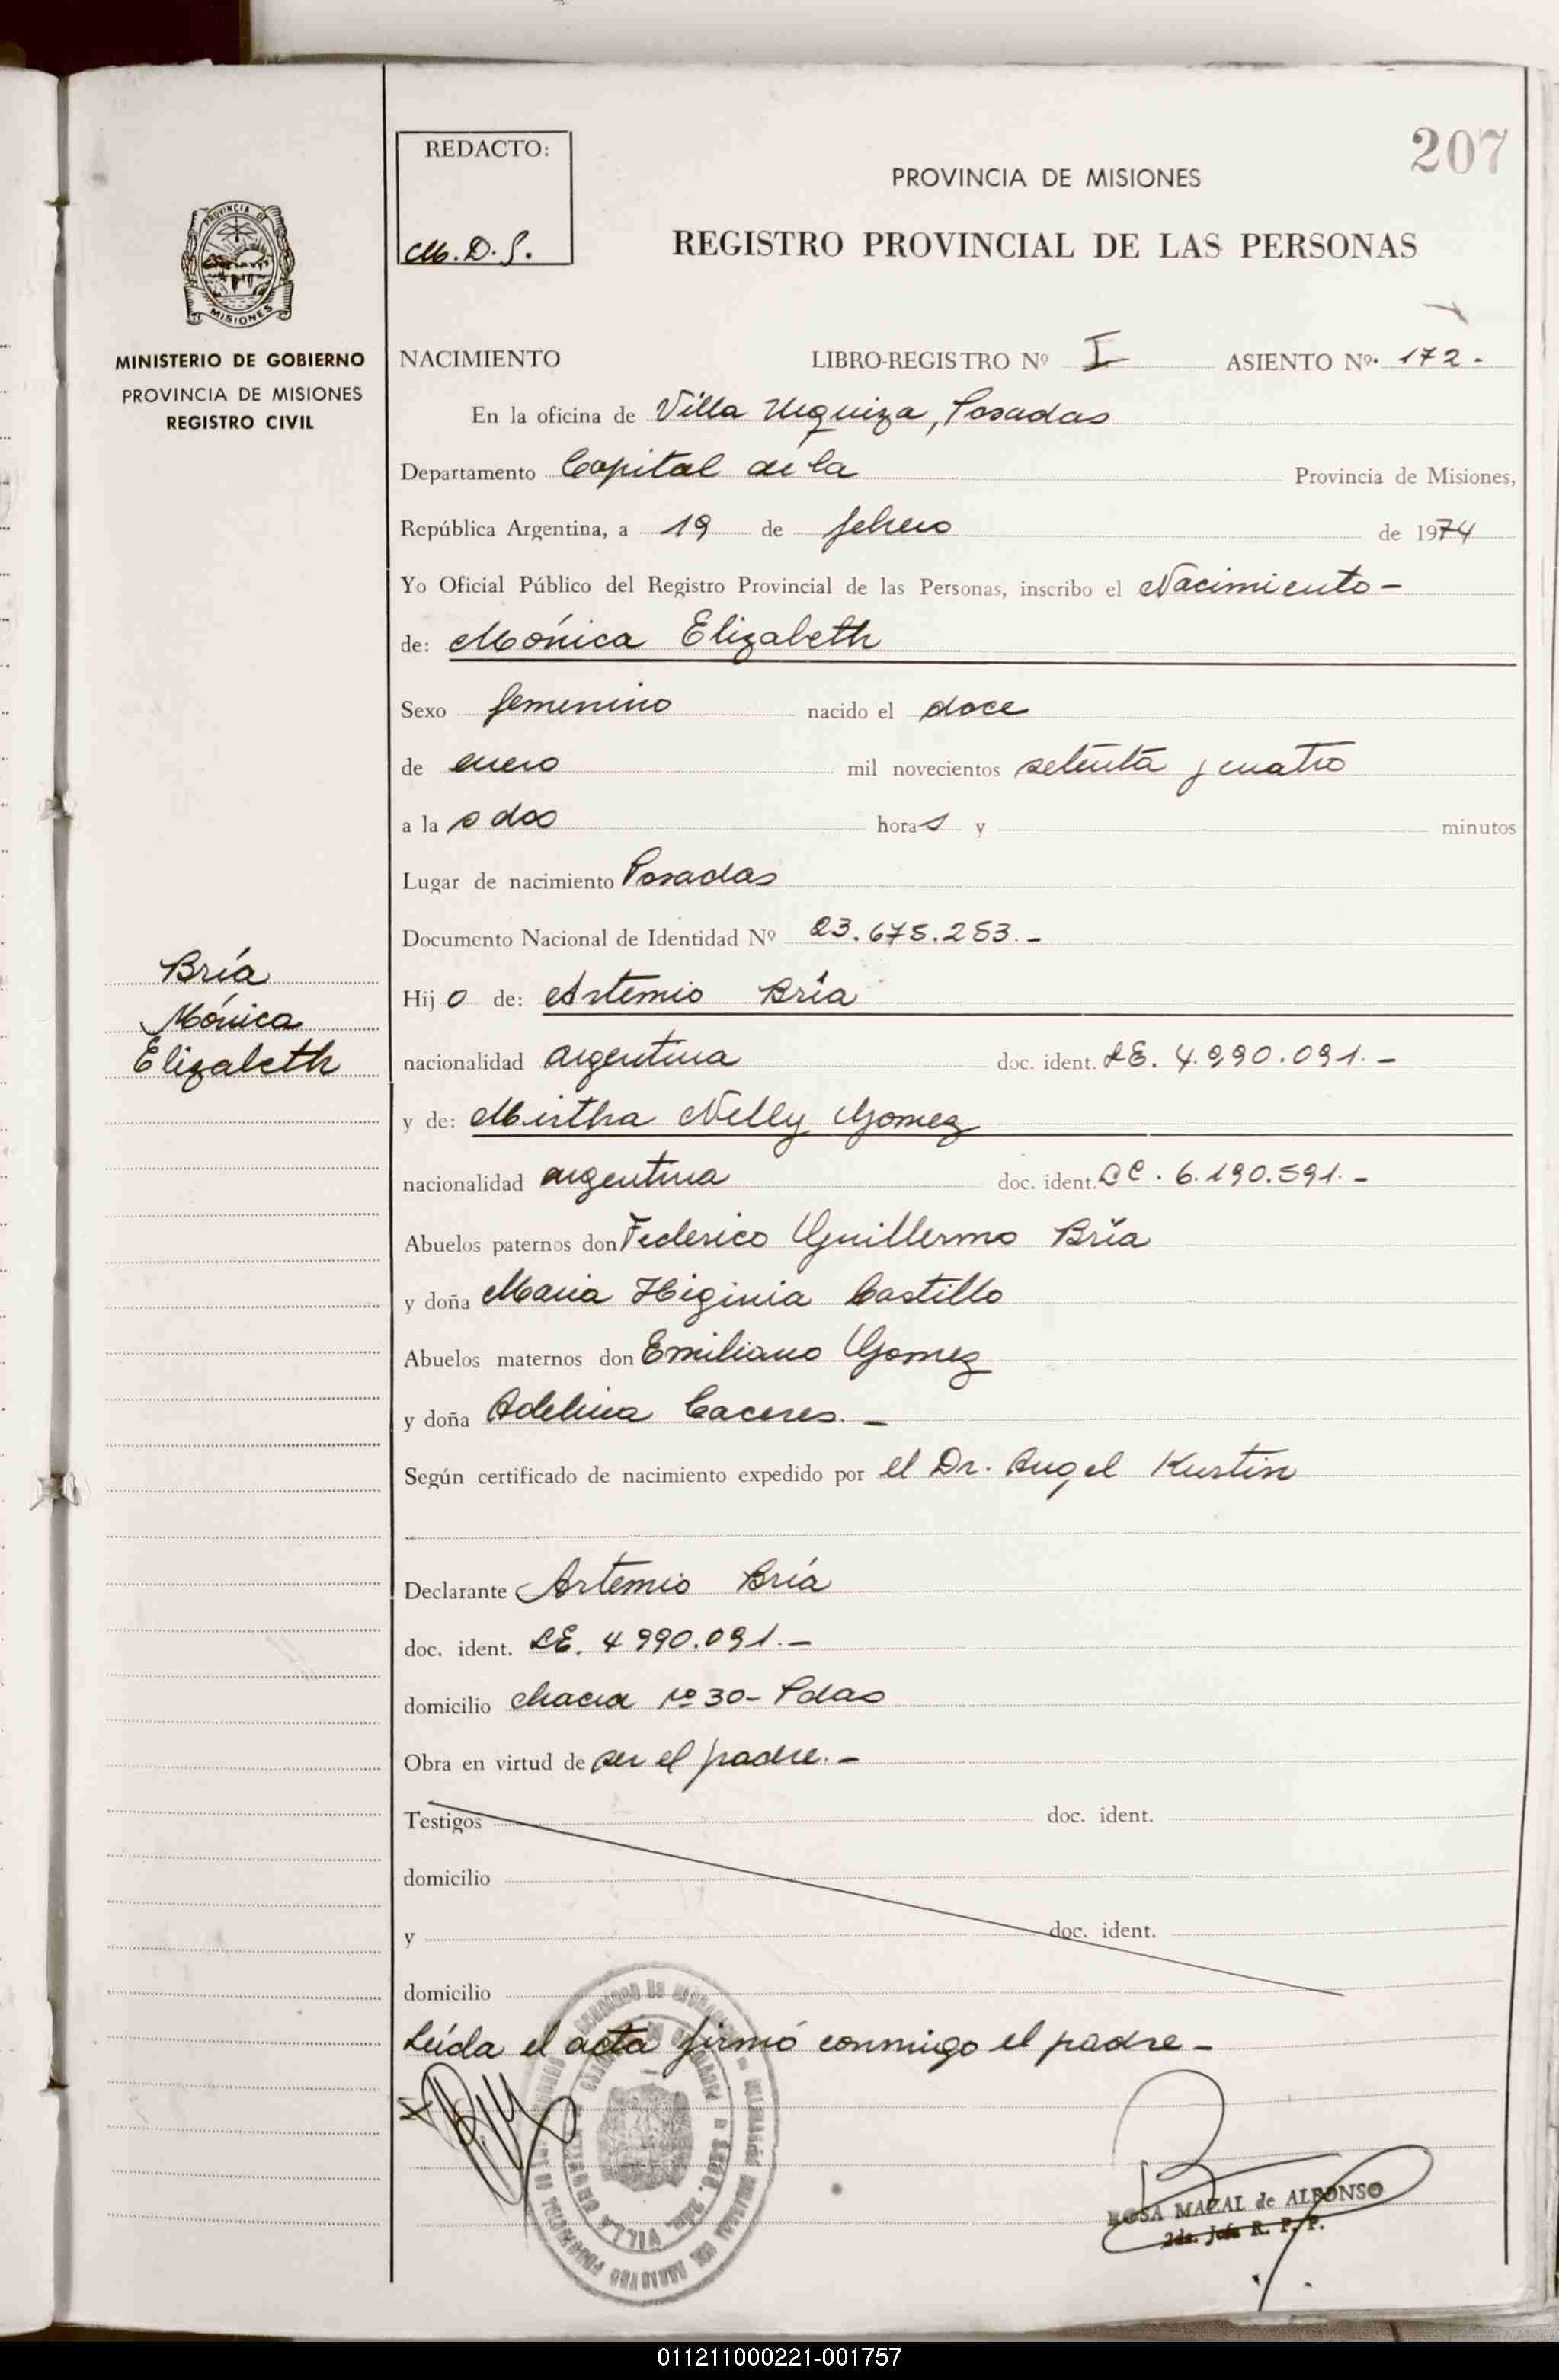 207
REDACTO:
M. D. S.
PROVINCIA DE MISIONES
REGISTRO PROVINCIAL DE LAS PERSONAS
PROVINCIA DE
MISIONES
MINISTERIO DE GOBIERNO
PROVINCIA DE MISIONES
REGISTRO CIVIL
NACIMIENTO LIBRO-REGISTRO Nº I ASIENTO Nº. 172.-
En la oficina de Villa Urquiza, Posadas
Departamento Capital de la Provincia de Misiones,
República Argentina, a 19 de febrero de 1974
Yo Oficial Público del Registro Provincial de las Personas, inscribo el Nacimiento-
de: Mónica Elizabeth
Sexo femenino nacido el doce
de enero mil novecientos setenta y cuatro
a la s dos horas y minutos
Lugar de nacimiento Posadas
Documento Nacional de Identidad Nº 23.675.253.-
Bría
Mónica
Elizabeth
Hijo de: Artemio Bría
nacionalidad argentina doc. ident. LE. 4.990.091.-
y de: Mirtha Nelly Gomez
nacionalidad argentina doc. ident. LC. 6.190.591.-
Abuelos paternos don Federico Guillermo Bría
y doña Maria Higinia Castillo
Abuelos maternos don Emiliano Gomez
y doña Adelina Caceres.-
Según certificado de nacimiento expedido por el Dr. Angel Kustin
Declarante Artemio Bría
doc. ident. LE. 4990.091.-
domicilio chacra nº 30- Pdas
Obra en virtud de ser el padre.-
Testigos doc. ident.
domicilio
y doc. ident.
domicilio
Leída el acta firmó conmigo el padre-
ROSA MAZAL de ALFONSO
2da. Jefa R. P. P.
VILLA URQUIZA
011211000221-001757